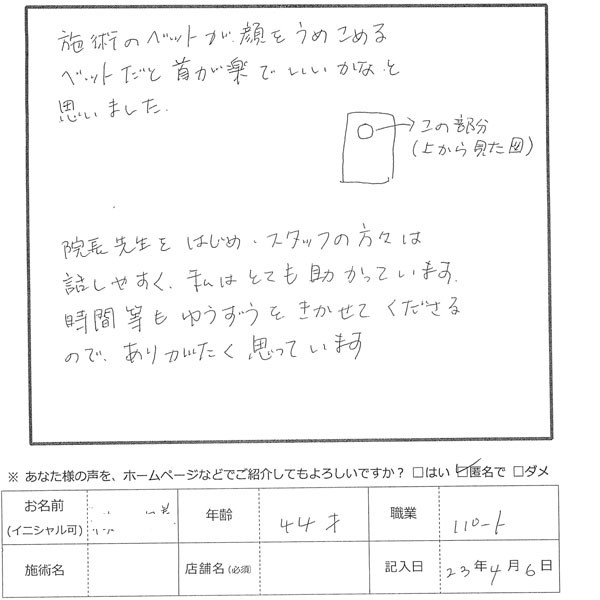 施術のベットが、顔をうめこめる
ベットだと首が楽でいいかなと
思いました.
この部分
(上から見た図)
院長先生をはじめ、スタッフの方々は
話しやすく、私はとても助かっています.
時間等もゆうずうをきかせてくださる
ので、ありがたく思っています
※ あなた様の声を、ホームページなどでご紹介してもよろしいですか？ □はい ☑匿名で □ダメ
お名前
(イニシャル可)
年齢
44才
職業
パート
施術名
店舗名(必須)
記入日
23年4月6日